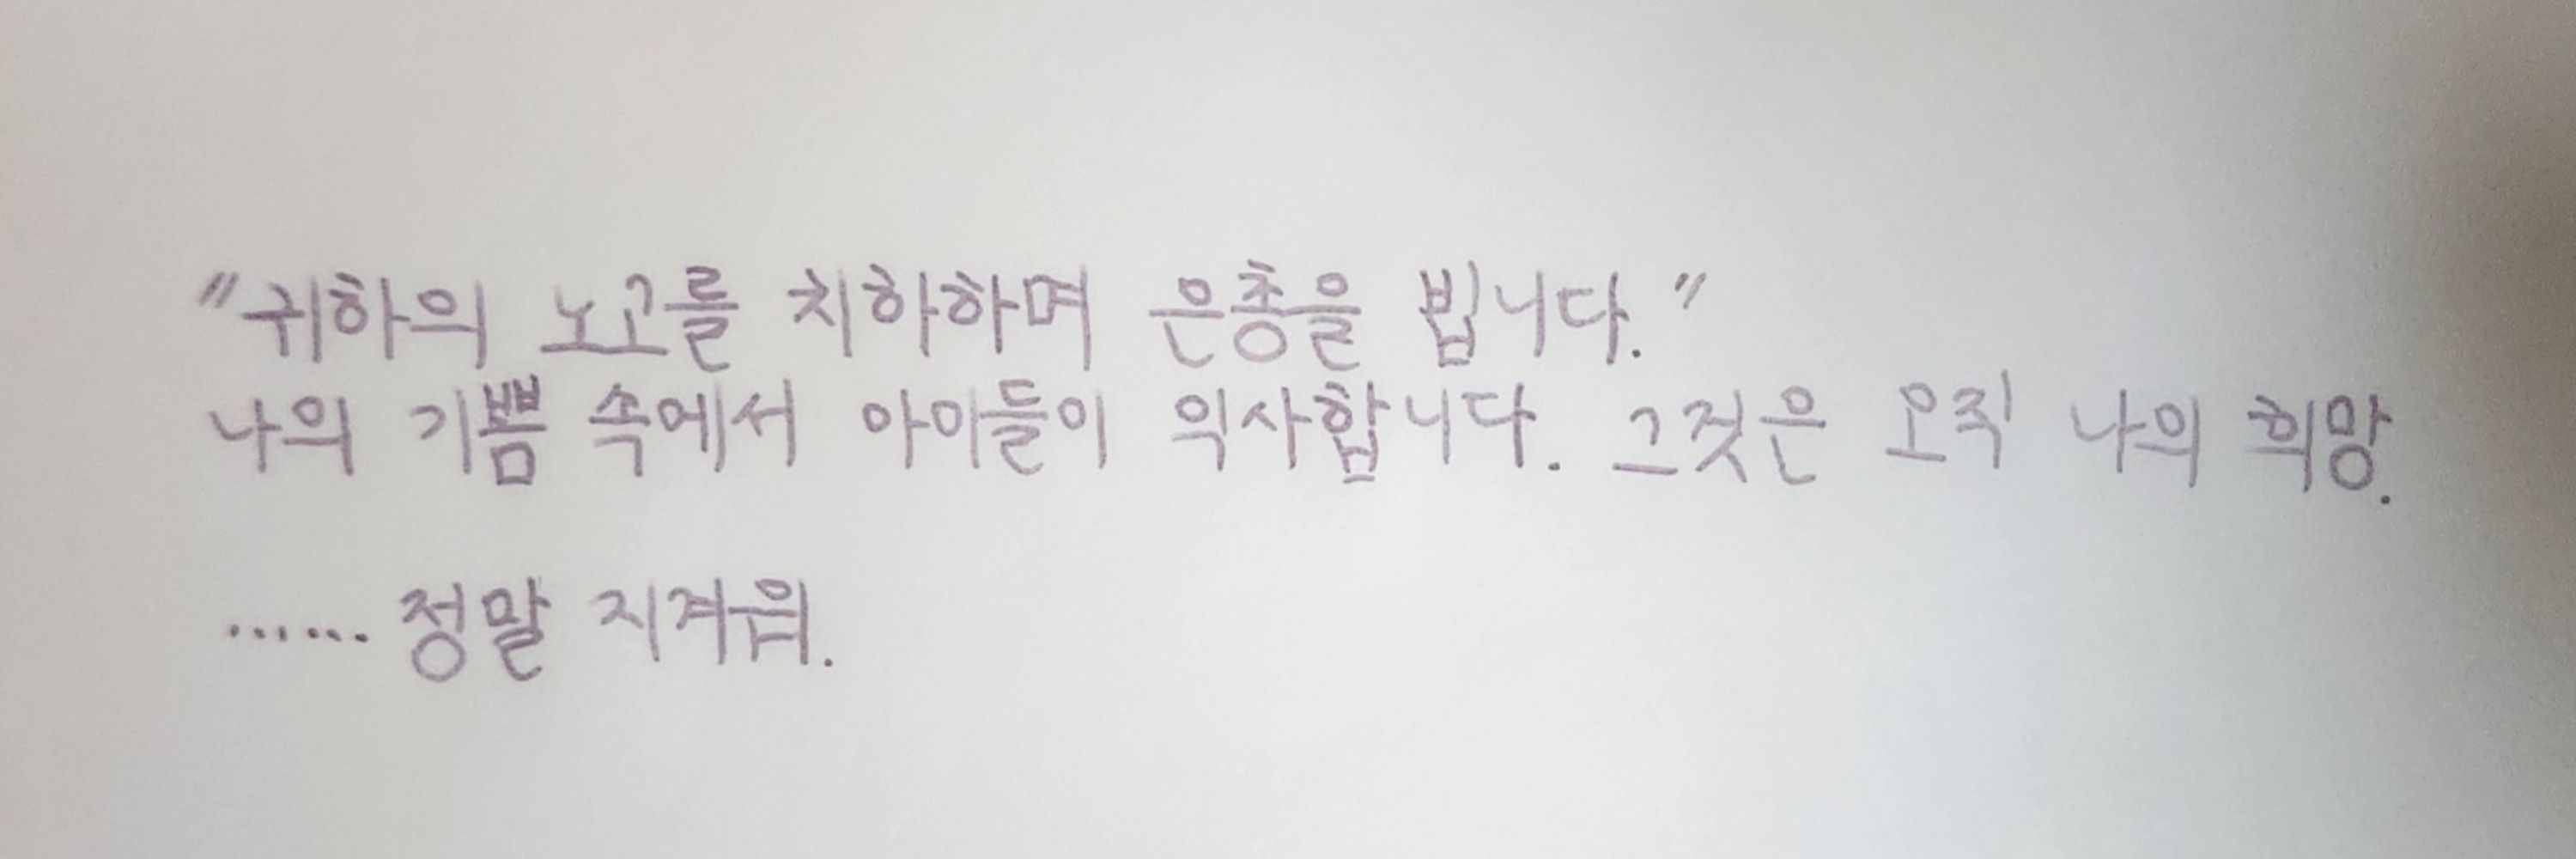 "귀하의 노고를 치하하며 은총을 빕니다."
나의 기쁨 속에서 아이들이 익사합니다. 그것은 오직 나의 희망.
…… 정말 지겨워.